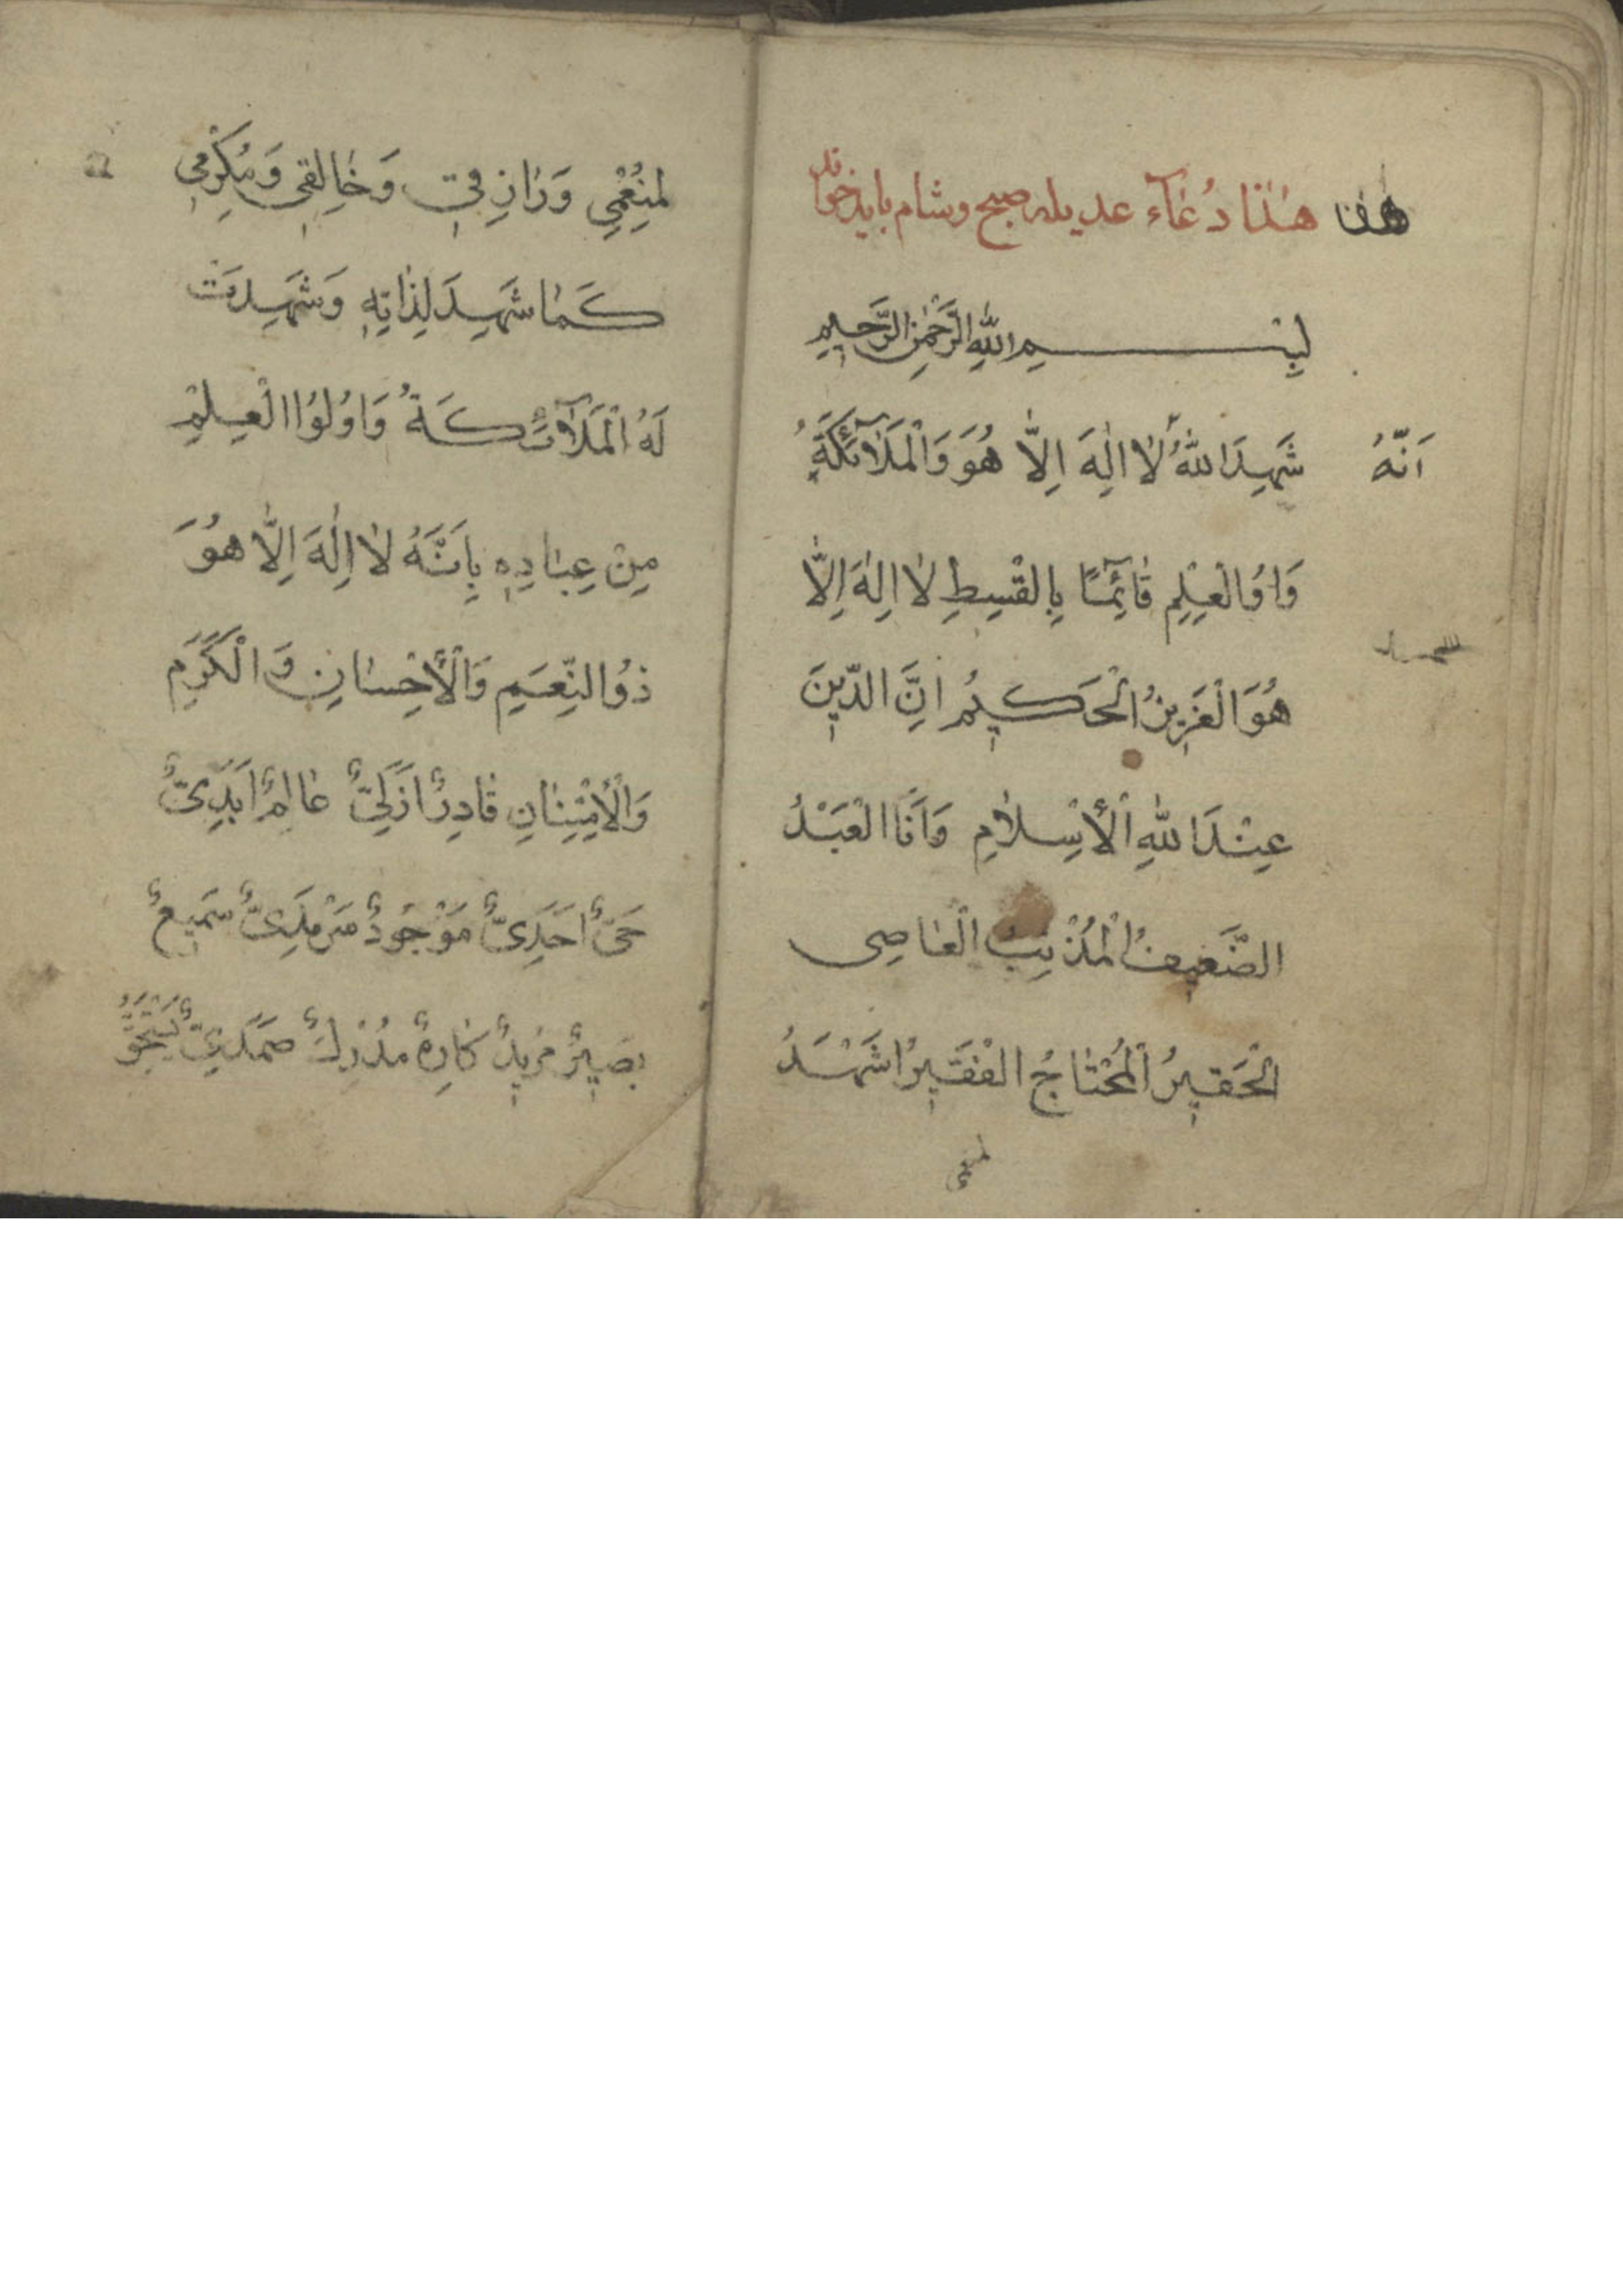 هذا هٰذا دُعٰآء عديله صبح وشام بايد خواند
بِسْمِ اللّٰهِ الرَّحْمٰنِ الرَّحيمِ
اَنَّهُ شَهِدَ اللّٰهُ لٰا اِلٰهَ اِلّٰا هُوَ وَالْمَلٰآئِكَةُ
وَاوُالْعِلْمِ قٰآئِمًا بِالْقِسْطِ لٰا اِلٰهَ اِلّٰا
هُوَ الْعَزيزُ الْحَكيمُ اِنَّ الدّينَ
عِنْدَ اللّٰهِ الْأِسْلٰامِ وَاَنَا الْعَبْدُ
الضَّعيفُ الْمُذْنِبُ الْعٰاصِى
الْحَقيرُ الْمُحْتٰاجُ الْفَقيرُ اَشْهَدُ
لمنعمي
لِمُنْعِمي وَرٰازِقي وَخٰالِقي وَمُكْرِمي
كَمٰا شَهِدَ لِذٰاتِهِ وَشَهِدَتْ
لَهُ الْمَلٰآئِكَةُ وَاوُلُوا الْعِلْمِ
مِنْ عِبٰادِهِ بِاَنَّهُ لٰا اِلٰهَ اِلّٰا هُوَ
ذُو النِّعَمِ وَالْأِحْسٰانِ وَالْكَرَمِ
وَالْأِمْتِنٰانِ قٰادِرٌ اَزَلِىٌّ عٰالِمٌ اَبَدِىٌّ
حَىٌّ اَحَدِىٌّ مَوْجُودٌ سَرْمَدِىٌّ سَميعٌ
بَصيرٌ مُريدٌ كٰارِهٌ مُدْرِكٌ صَمَدِىٌّ يَسْتَحِقُّ